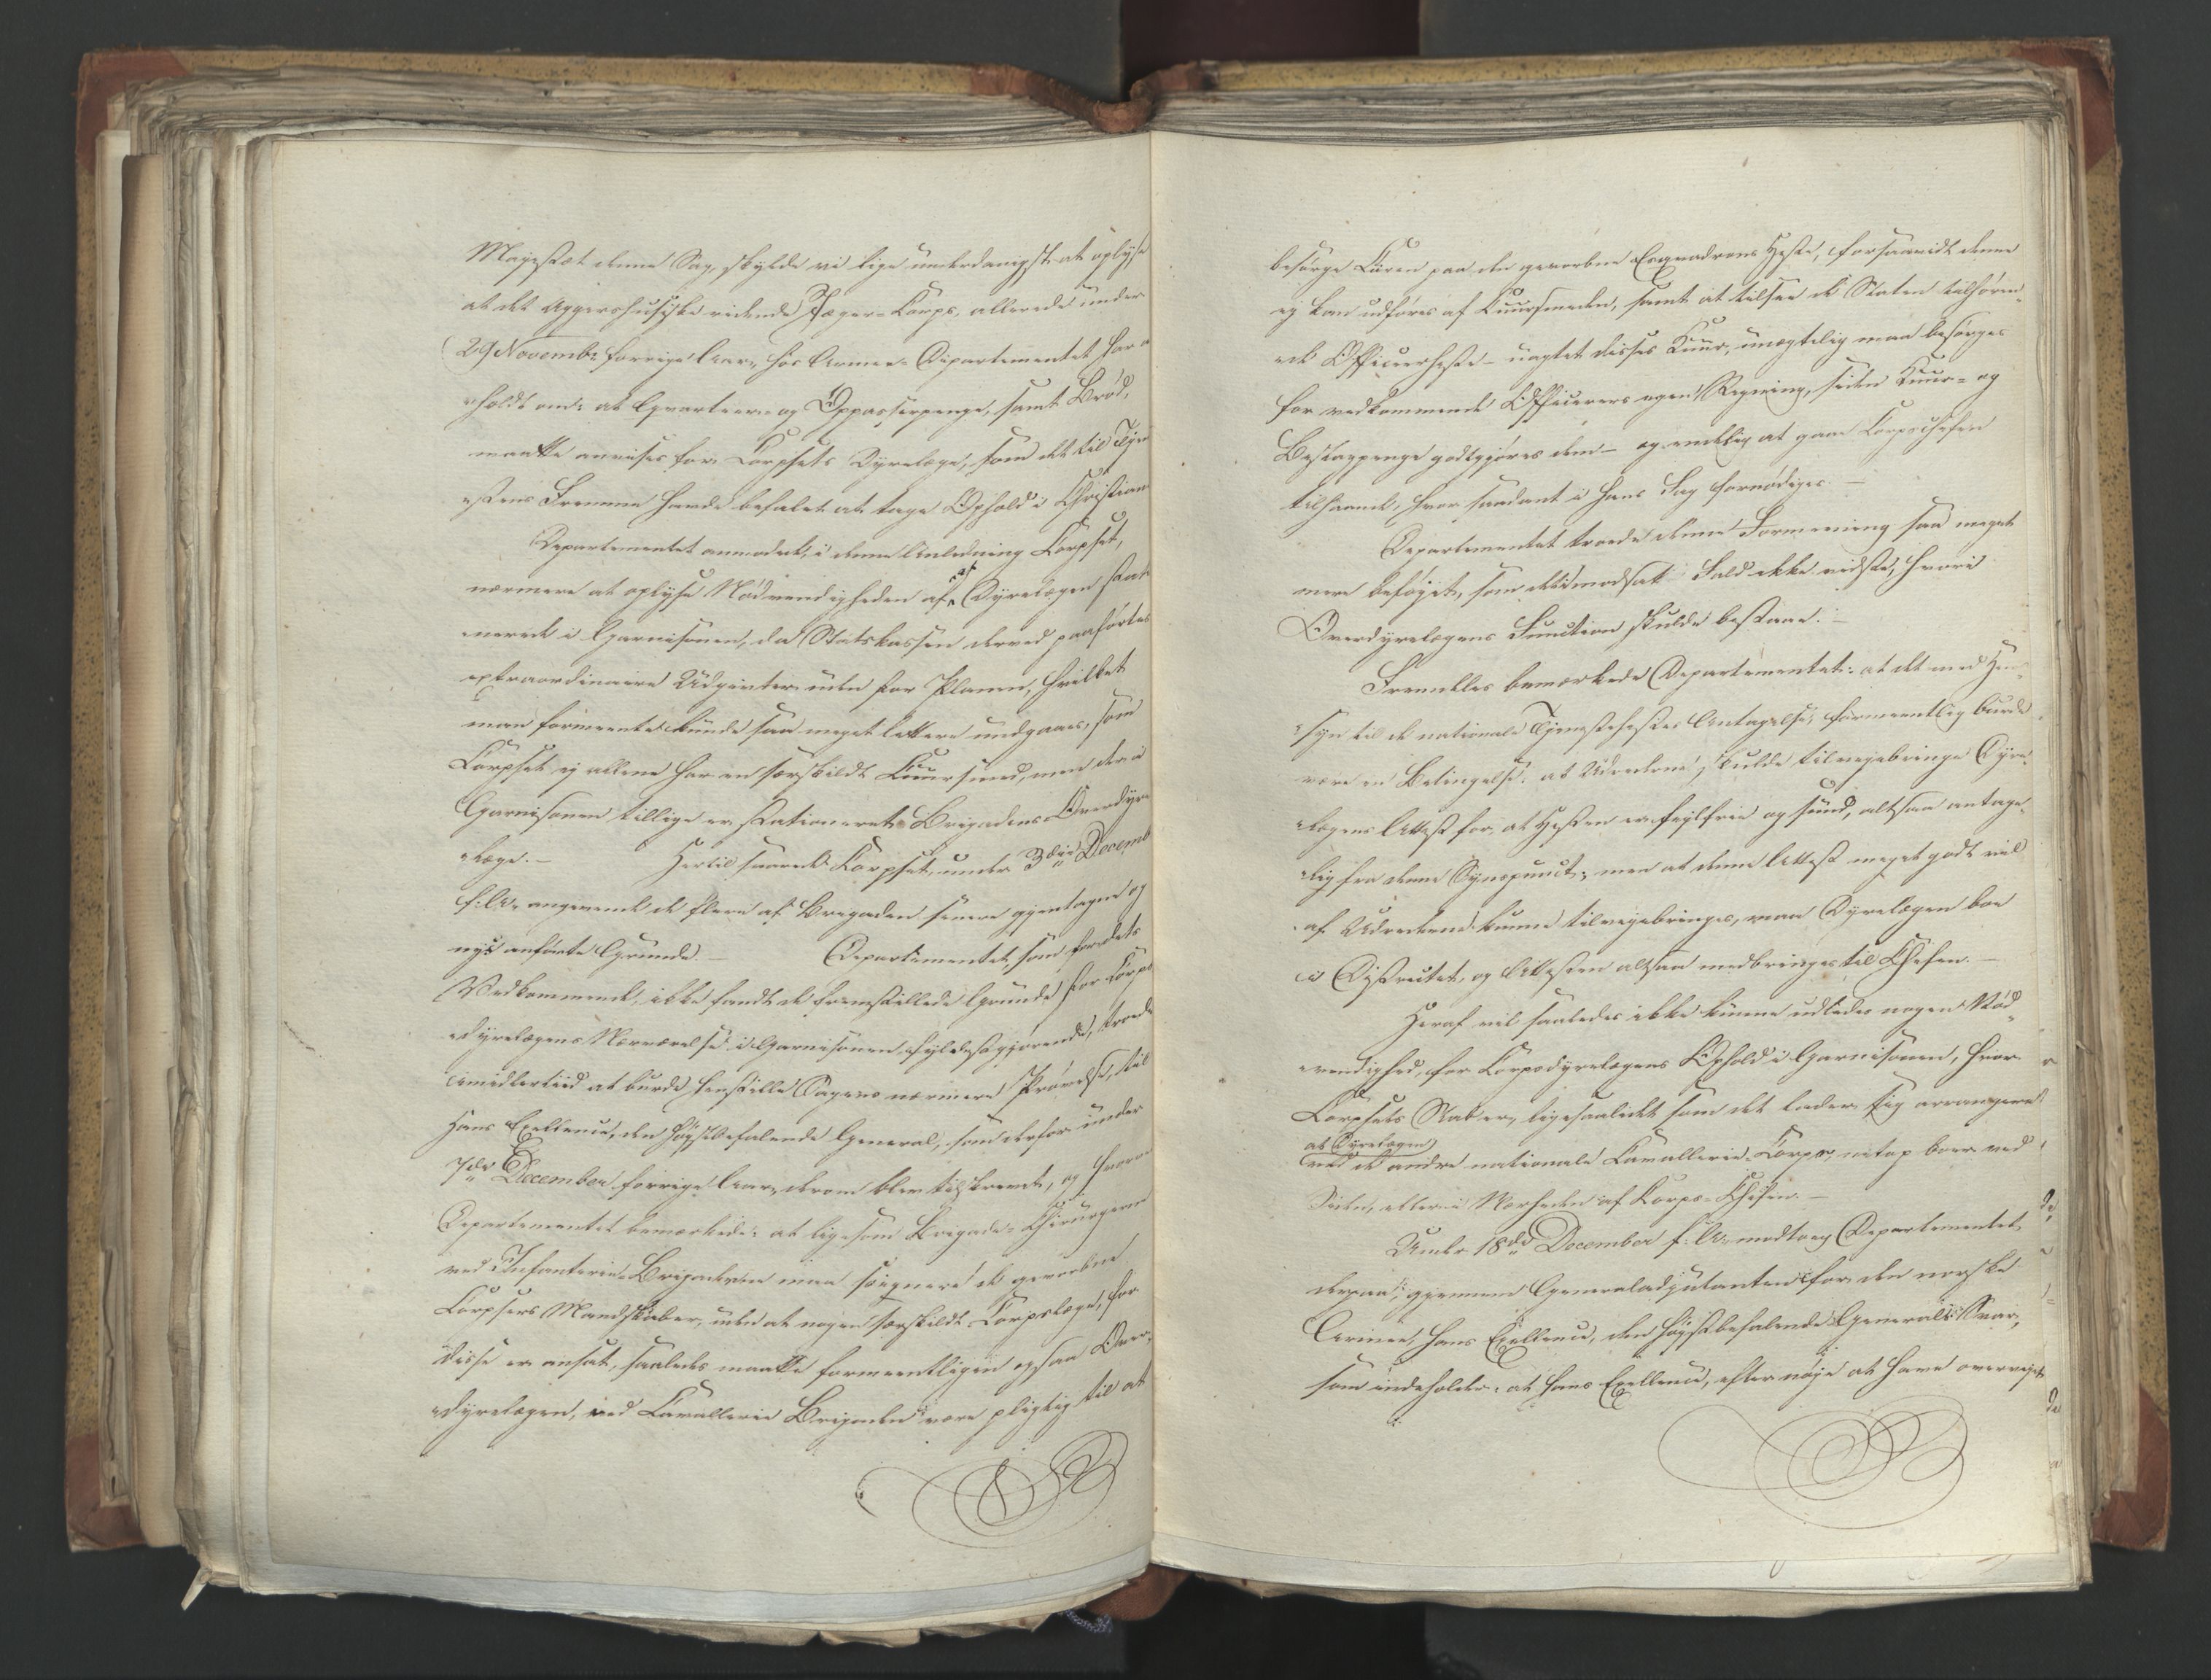 Majestæt denne Sag, skylde vi lige underdanigst at oplyse
at det Aggershusiske ridende Jæger-Korps, allerede under
29 Novembr forrige Aar, hos Armee-Departementet har
holdt om: at Qvarteer- og Oppasserpenge, samt Brød,
maatte anvises for Corpsets Dyrelæge, som det til Tjen
estens Fremme havde befalet at tage Ophold i Christian
Departementet anmodede, i denne Anledning Corpset,
nærmere at oplyse Nødvendigheden af at Dyrelægen stati
onerede i Garnisonen, da Statskassen derved paaførtes
extraordinaire Udgivter uden for Planen, hvilket
man formeente kunde saa meget lettere undgaaes, som
Corpset ej allene har en særskildt Cuursmed, men der i
Garnisonen tillige er stationeret Brigadens Overdyre
læge. — Hertil svarede Corpset, under 3die Decemb
f: A: angivende de flere af Brigaden senere gjentagne og
nys anførte Grunde. — Departementet, som for dets
Vedkommende, ikke fandt de fremstillede Grunde for Corps
dyrelægens Nærværelse i Garnisonen fyldestgjørende, troede
imidlertiid at burde henstille Sagens nærmere Prøvelse, til
Hans Excellence, den høystbefalende General, som derfor under
7de December forrige Aar, derom blev tilskrevet, og hvorom
Departementet bemærkede: at ligesom Brigade-Chirurgerne
ved Infanterie-Brigaderne maa foignere de gevorbne
Corpsers Mandskaber, uden at nogen særskildt Corpslæge, for
disse er ansat, saaledes maatte formeentligen ogsaa Over-
dyrelægen, ved Cavallerie Brigaden være pligtig til at
besørge Curen paa den gevorbne Esqvadrons Heste, forsaavidt denne
ej kan udføres af Cuursmeden, samt at tilsee de Staten tilhøren-
de Officeerheste - uagtet disses Cuur, unægtelig maa besørges
for vedkommende Officerers egen Regning, siden Cuur- og
Beslagpenge godtgjøres dem - og endelig at gaae Corpschefen
tilhaande, hvor saadant i hans Fag fornødiges. —
Departementet troede denne Formening saa meget
mere beføjet, som det i modsat Fald ikke vidste, hvori
Overdyrelægens Function skulde bestaae. —
Fremdeles bemærkede Departementet: at det med Hen-
syn til de nationale Tjenestehestes Antagelse, formeentlig burde
være en Betingelse: at Udrederne skulde tilvejebringe Dyre-
lægens Attest for, at Hesten er fejlfrie og sund, altsaa antage-
lig fra denne Synspunct; men at denne Attest meget godt vil
af Udrederne kunne tilvejebringes, naar Dyrelægen boe
i Districtet, og Attesten altsaa medbringes til Chefen. —
Heraf vil saaledes ikke kunne udledes nogen Nød-
vendighed, for Corpsdyrelægens Ophold i Garnisonen, hvor
Corpsets Stab er, ligesaalidt som det lader sig arrangere
at Dyrelægen
ved de andre nationale Cavallerie-Corps, netop boer ved
Siden, eller i Nærheden af Korps-Chefen. —
Under 18de December f: A: modtog Departementet
derpaa, gjennem Generaladjutanten for den norske
Armee, Hans Excellence, den høystbefalende Generals Svar,
som indeholder: at Hans Excellence, efter nøje at have overvejet